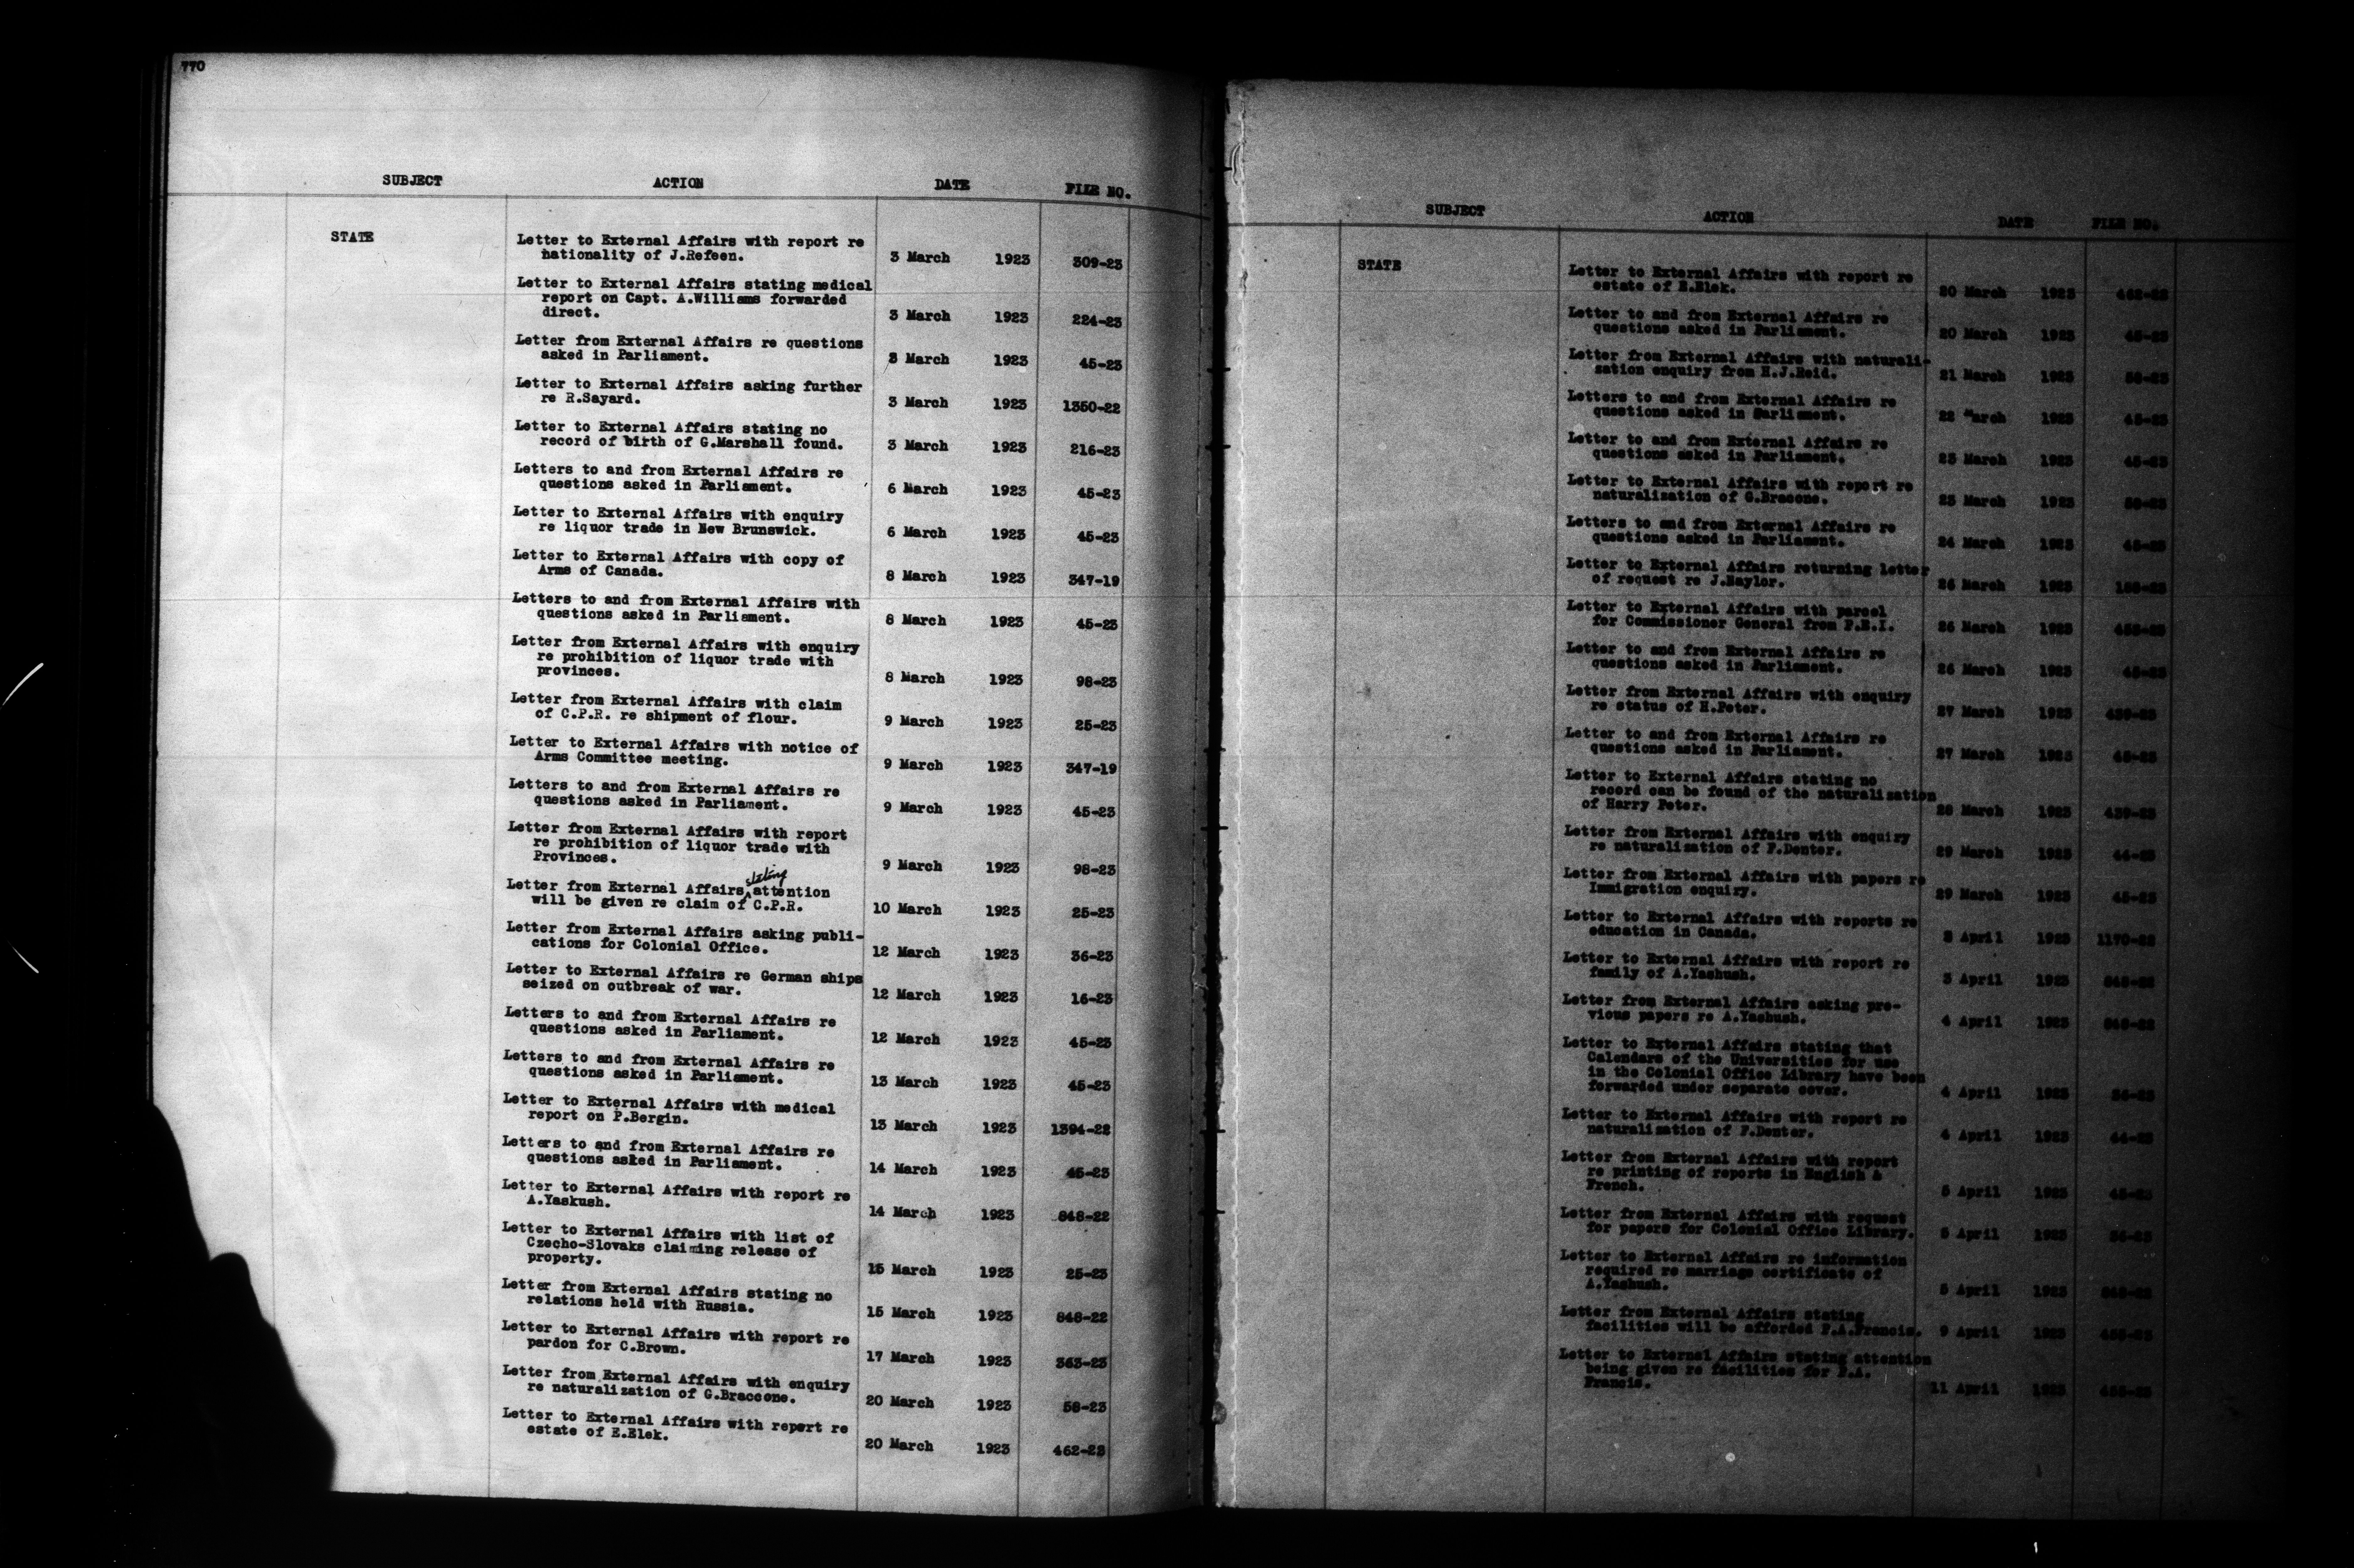 770
SUBJECT ACTION DATE FILE NO.
STATE
Letter to External Affairs with report re
nationality of J.Refeen. 3 March 1923 309-23
Letter to External Affairs stating medical
report on Capt. A.Williams forwarded
direct. 3 March 1923 224-23
Letter from External Affairs re questions
asked in Parliament. 3 March 1923 45-23
Letter to External Affairs asking further
re R.Sayard. 3 March 1923 1350-22
Letter to External Affairs stating no
record of birth of G.Marshall found. 3 March 1923 216-23
Letters to and from External Affairs re
questions asked in Parliament. 6 March 1923 45-23
Letter to External Affairs with enquiry
re liquor trade in New Brunswick. 6 March 1923 45-23
Letter to External Affairs with copy of
Arms of Canada. 8 March 1923 347-19
Letters to and from External Affairs with
questions asked in Parliament. 8 March 1923 45-23
Letter from External Affairs with enquiry
re prohibition of liquor trade with
provinces. 8 March 1923 98-23
Letter from External Affairs with claim
of C.P.R. re shipment of flour. 9 March 1923 25-23
Letter to External Affairs with notice of
Arms Committee meeting. 9 March 1923 347-19
Letters to and from External Affairs re
questions asked in Parliament. 9 March 1923 45-23
Letter from External Affairs with report
re prohibition of liquor trade with
Provinces. 9 March 1923 98-23
Letter from External Affairs stating attention
will be given re claim of C.P.R. 10 March 1923 25-23
Letter from External Affairs asking publi-
cations for Colonial Office. 12 March 1923 36-23
Letter to External Affairs re German ships
seized on outbreak of war. 12 March 1923 16-23
Letters to and from External Affairs re
questions asked in Parliament. 12 March 1923 45-23
Letters to and from External Affairs re
questions asked in Parliament. 13 March 1923 45-23
Letter to External Affairs with medical
report on P.Bergin. 13 March 1923 1394-22
Letters to and from External Affairs re
questions asked in Parliament. 14 March 1923 45-23
Letter to External Affairs with report re
A.Yaskush. 14 March 1923 848-22
Letter to External Affairs with list of
Czecho-Slovaks claiming release of
property. 15 March 1923 25-23
Letter from External Affairs stating no
relations held with Russia. 15 March 1923 848-22
Letter to External Affairs with report re
pardon for C.Brown. 17 March 1923 363-23
Letter from External Affairs with enquiry
re naturalization of G.Braccone. 20 March 1923 58-23
Letter to External Affairs with report re
estate of E.Elek. 20 March 1923 462-23
SUBJECT ACTION DATE FILE NO.
STATE
Letter to External Affairs with report re
estate of E.Elek. 20 March 1923
Letter to and from External Affairs re
questions asked in Parliament. 20 March 1923 45-23
Letter from External Affairs with naturali-
zation enquiry from H.J.Reid. 21 March 1923 58-23
Letters to and from External Affairs re
questions asked in Parliament. 22 March 1923 45-23
Letter to and from External Affairs re
questions asked in Parliament. 23 March 1923 45-23
Letter to External Affairs with report re
naturalization of G.Braccone. 23 March 1923 58-23
Letters to and from External Affairs re
questions asked in Parliament. 24 March 1923 45-23
Letter to External Affairs returning letter
of request re J.Naylor. 26 March 1923
Letter to External Affairs with parcel
for Commissioner General from P.E.I. 26 March 1923
Letter to and from External Affairs re
questions asked in Parliament. 26 March 1923 45-23
Letter from External Affairs with enquiry
re status of H.Peter. 27 March 1923 439-23
Letter to and from External Affairs re
questions asked in Parliament. 27 March 1923 45-23
Letter to External Affairs stating no
record can be found of the naturalization
of Harry Peter. 28 March 1923 439-23
Letter from External Affairs with enquiry
re naturalization of F.Denter. 29 March 1923 44-23
Letter from External Affairs with papers re
Immigration enquiry. 29 March 1923 45-23
Letter to External Affairs with reports re
education in Canada. 3 April 1923 1170-22
Letter to External Affairs with report re
family of A.Yashush. 3 April 1923 848-22
Letter from External Affairs asking pre-
vious papers re A.Yashush. 4 April 1923 848-22
Letter to External Affairs stating that
Calendars of the Universities for use
in the Colonial Office Library have been
forwarded under separate cover. 4 April 1923 36-23
Letter to External Affairs with report re
naturalization of F.Denter. 4 April 1923 44-23
Letter from External Affairs with report
re printing of reports in English &
French. 5 April 1923 45-23
Letter from External Affairs with request
for papers for Colonial Office Library. 5 April 1923 36-23
Letter to External Affairs re information
required re marriage certificate of
A.Yashush. 5 April 1923 848-22
Letter from External Affairs stating
facilities will be afforded F.A.Francis. 9 April 1923
Letter to External Affairs stating attention
being given re facilities for F.A.
Francis. 11 April 1923